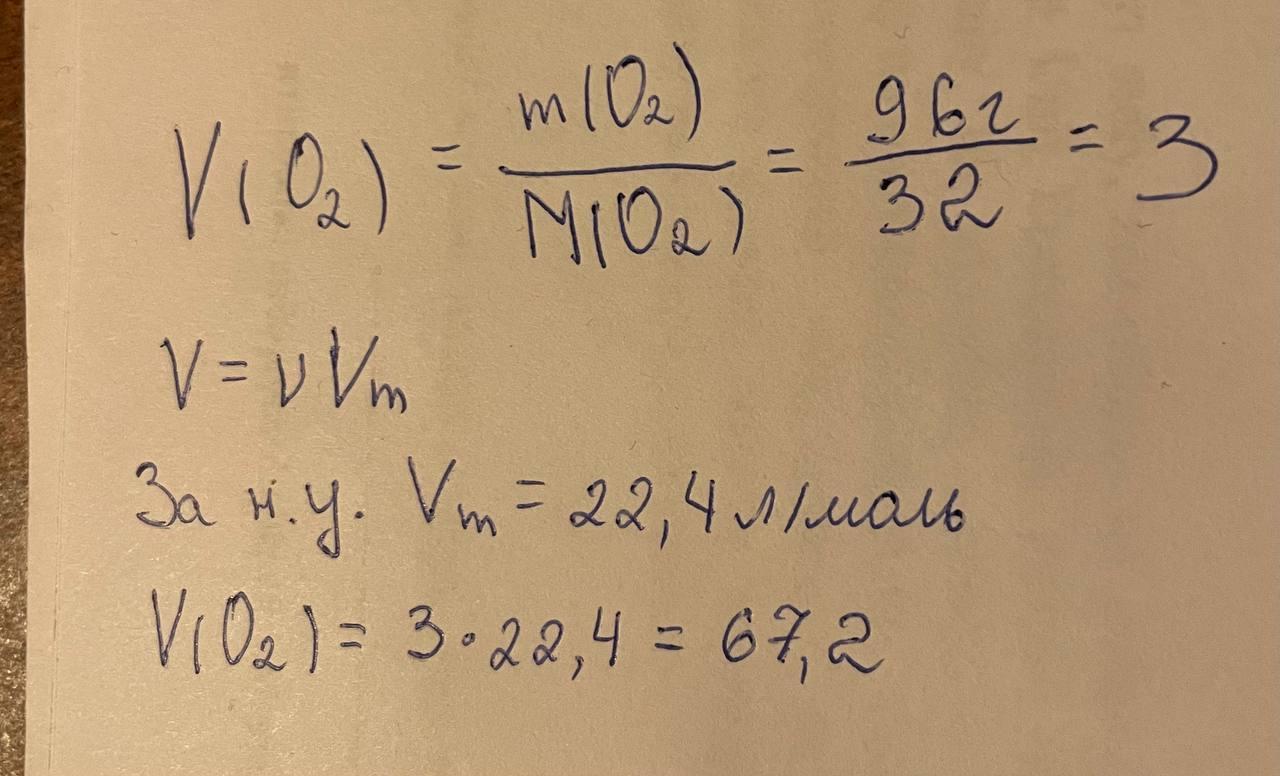 V(O₂) = m(O₂)/M(O₂) = 96г/32 = 3
V = νVm
За н.у. Vm = 22,4 л/моль
V(O₂) = 3·22,4 = 67,2